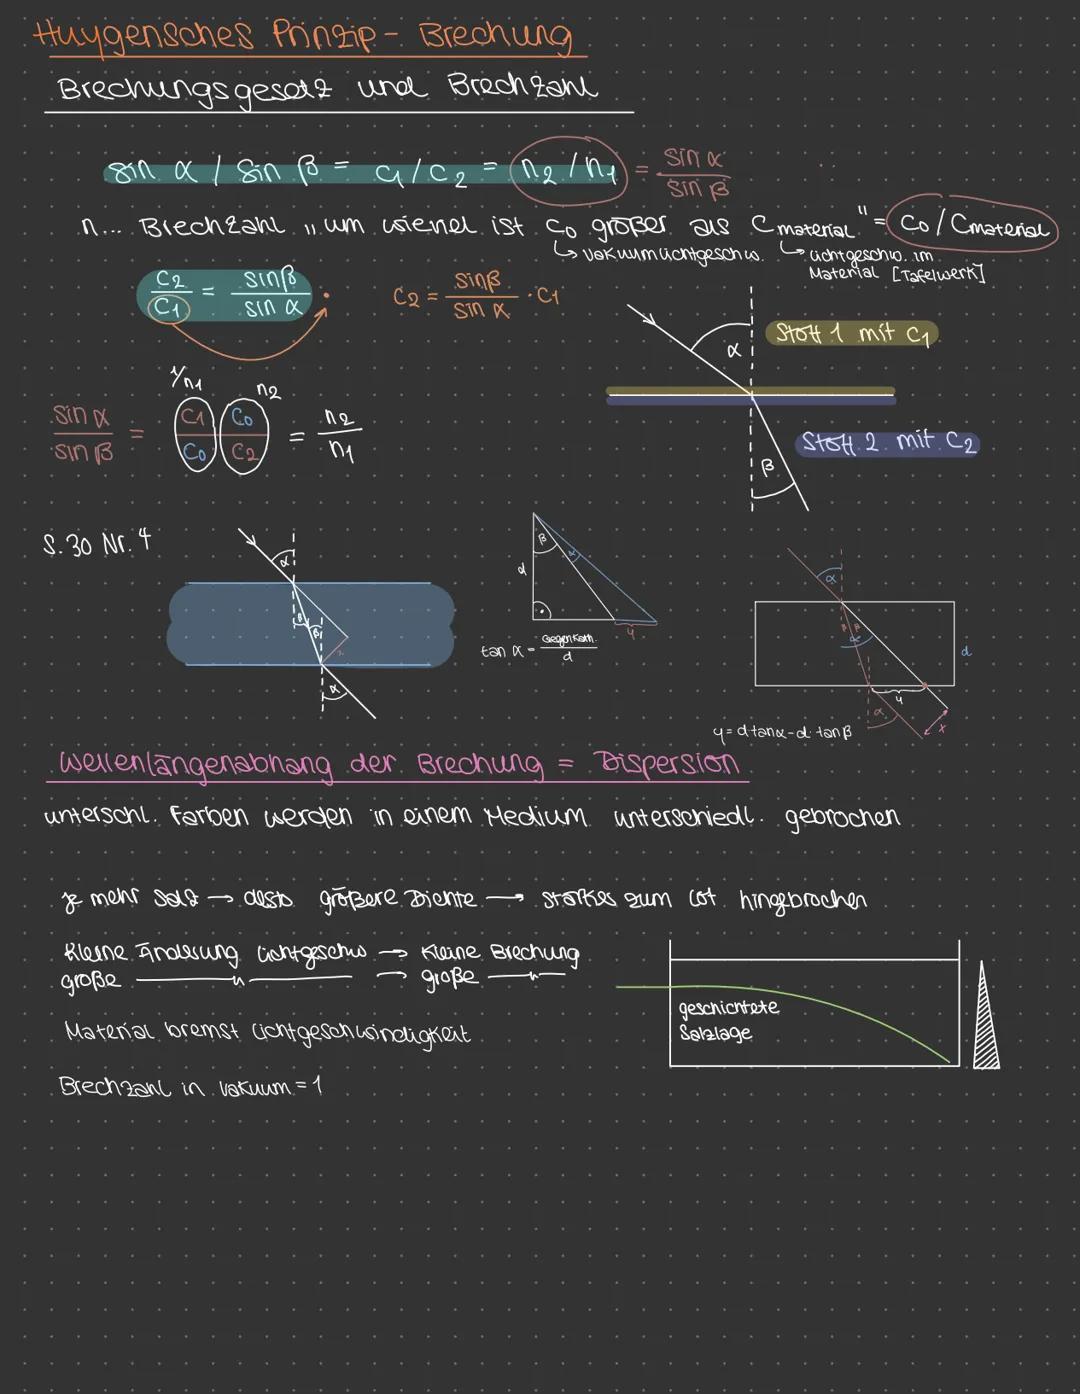 Huygensches Prinzip - Brechung
Brechungsgesetz und Brechzahl
sin α / sin β = c1 / c2 = n2 / n1 = sin α / sin β
n... Brechzahl „um wieviel ist c0 größer als cmaterial" = c0 / cmaterial
↳ Vakuumlichtgeschw. ↳ Lichtgeschw. im Material [Tafelwerk]
c2 / c1 = sin β / sin α
c2 = sin β / sin α · c1
Stoff 1 mit c1
α
Stoff 2 mit c2
β
1/n1 n2
sin α / sin β = c1 / c0 c0 / c2 = n2 / n1
S. 30 Nr. 4
α
β
β
x
α
β
α
d
y
tan α = Gegenkath. / d
α
β β
α
d
y
α
x
y = d·tanα - d·tanβ
Wellenlängenabhäng der Brechung = Dispersion
unterschl. Farben werden in einem Medium unterschiedl. gebrochen
je mehr Salz → desto größere Dichte → starkes zum Lot hingebrochen
Kleine Änderung Lichtgeschw → Kleine Brechung
große —"— → große —"—
geschichtete
Salzlage
Material bremst Lichtgeschwindigkeit
Brechzahl in Vakuum = 1